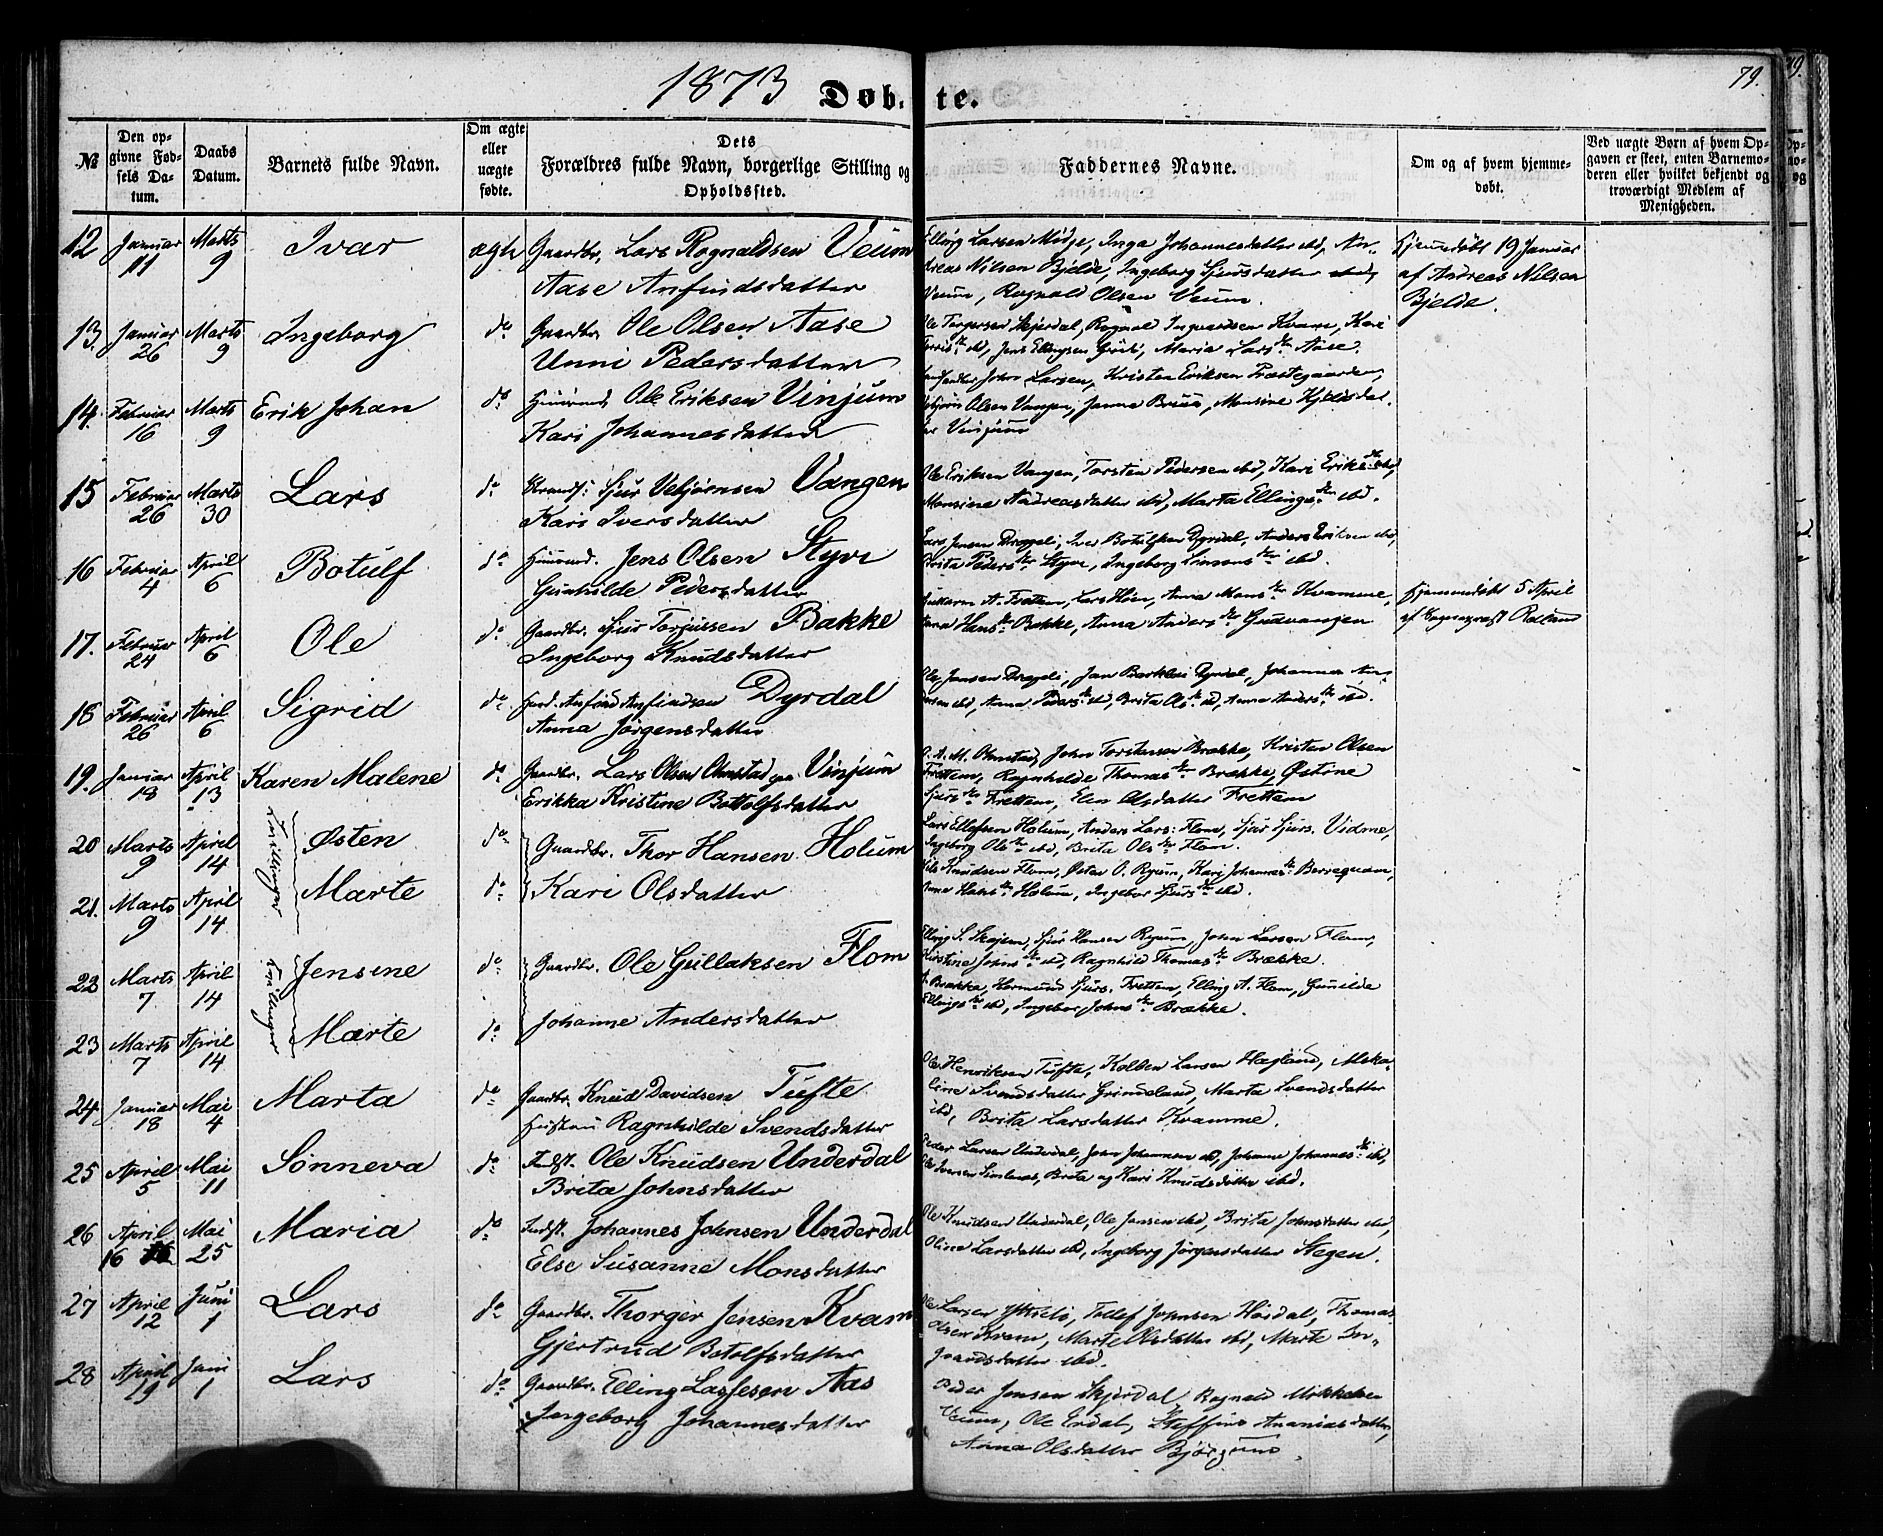 1873 Døbte. 79.
№
Den opgivne Fødsels Datum.
Daabs Datum.
Barnets fulde Navn.
Om ægte eller uægte fødte.
Dets Forældres fulde Navn, borgerlige Stilling og Opholdssted.
Faddernes Navne.
Om og af hvem hjemmedøbt.
Ved uægte Børn af hvem Opgaven er skeet, enten Barnemoderen eller hvilket bekjendt og troværdigt Medlem af Menigheden.
12 Januar 11 Marts 9 Ivar ægte Gaardbr. Lars Rognaldsen Veum
Aase Anfindsdatter
Elling Larsen Midje, Inga Johannesdatter ibd, An-
dreas Nilsen Bjelde, Ingeborg Sjursdatter
Veum, Rognald Olsen Veum.
Hjemmedøbt 19 Januar
af Andreas Nilsen
Bjelde.
13. Januar 26 Marts 9 Ingeborg do Gaardbr. Ole Olsen Aase
Unni Pedersdatter
Ole Torgersen Skjerdal, Rognald Ingvardsen Kvam, Kari
ibd, Jens Ellingsen Maria Larsdr Aase.
14. Februar 16 Marts 9 Erik Johan do Huusmd. Ole Eriksen Vinjum
Kari Johannesdatter
John Larsen, Kristen Eriksen Præstegaarden,
Olsen Vangen, Janna Bruun, Monsine
Vinjum
15 Februar 26 Marts 30 Lars do Sjur Vebjørnsen Vangen
Kari Iversdatter
Ole Eriksen Vangen, Torsten Pedersen ibd, Kari Eriksdr ibd,
Monsine Andreasdatter ibd, Marta Ellingsdr ibd.
16 Februar 4 April 6 Botulf do Huusmd. Jens Olsen Styve
Gunhilde Pedersdatter
Lars Jensen Drægeli, Iver Botulfsen Dyrdal, Anders Eriksen ibd,
Brita Pedersdr Styve, Ingeborg Simonsdr ibd.
17. Februar 24 April 6 Ole do Gaardbr. Sjur Torjussen Bakke
Ingeborg Knudsdatter
A. Frettem, Lars Anna Monsdr Kvamme,
Anna Hansdr Bakke, Anna Andersdr Gudvangen
Hjemmedøbt 5 April
af Sognepræst
18 Februar 26 April 6 Sigrid do Anfind Anfindsen Dyrdal
Anna Jørgensdatter
Jensen Drægeli, Jan Dyrdal, Johannes An-
dersen ibd, Anna Pedersdr ibd, Brita Olsdr ibd, Anna Andersdr ibd.
19. Januar 18 April 13 Karen Malene do Gaardbr. Lars Olsen Onstad paa Vinjum
Erikka Kristine Bottolfsdatter
O. A. M. Onstad, John Torstensen Brække, Kristen Olsen
Frettem, Ragnhilde Thomasdr Brække, Østine
Sjursdr Frettem, Elen Olsdatter Frettem
Tvillinger
20 Marts 9 April 14 Østen do Gaardbr. Thor Hansen Holum
Lars Ellefsen Holum, Anders Lars: Flom, Sjur Sjurs. Vidme,
Ingeborg Olsdr ibd, Brita Olsdr Flom.
21. Marts 9 April 14 Marte do Kari Olsdatter
Nils Knudsen Flom, Østen O. Ryum, Kari Johannesdr Berreqvam,
Anna Hansdr Holum, Ingebor Sjursdr ibd.
Tvillinger
22 Marts 7 April 14 Jensine do Gaardbr. Ole Gullaksen Flom
Elling S. Sjur Hansen Ryum, John Larsen Flom,
Kirstine Johnsdr ibd, Ragnhild Thomasdr Brække.
23 Marts 7 April 14 Marte do Johanne Andersdatter
Brække, Hermund Sjurs. Frettem, Elling A. Flom, Gunilde
Ellingsdr ibd, Ingebor Johnsdr Brække.
24. Januar 18 Mai 4 Marta do Gaardbr. Knud Davidsen Tufte
Hustru Ragnhilde Svendsdatter
Ole Henriksen Tufte, Kolben Larsen Høgland,
Svendsdatter Grindeland, Marta Svendsdatter
ibd, Brita Larsdatter Kvamme.
25 April 5 Mai 11 Sønneva do Indst. Ole Knudsen Underdal
Brita Johnsdatter
Peder Larsen Underdal, John Johannesen ibd, Johanne Johannesdr ibd,
Ole Iversen Brita og Kari Knudsdøtre ibd.
26 April 16 Mai 25 Maria do Indst. Johannes Johnsen Underdal
Else Susanne Monsdatter
Ole Knudsen Underdal, Ole Jensen ibd, Brita Johnsdatter ibd,
Oline Larsdatter ibd, Ingeborg Jørgensdatter Stegen.
27 April 12 Juni 1 Lars do Gaardbr. Thorger Jensen Kvam
Gjertrud Botolfsdatter
Ole Larsen Tollef Johnsen Høidal, Thomas
Olsen Kvam, Marte Olsdatter ibd, Marte In-
gvardsdatter ibd.
28 April 19 Juni 1 Lars do Gaardbr. Elling Lassesen Aas
Ingeborg Johannesdatter
Peder Jensen Skjerdal, Rognald Mikkelsen
Veum, Ole Erdal, Steffine Ananiasdatter,
Anna Olsdatter Bjørgum.